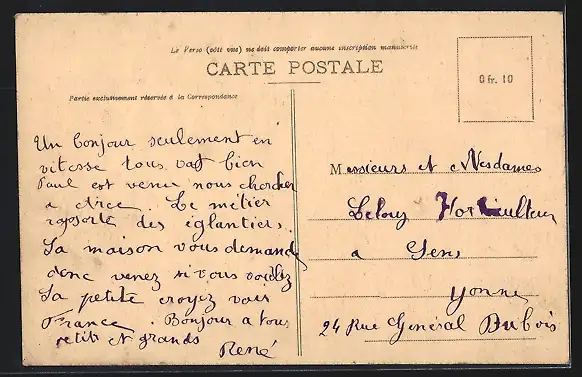 Le Verso (côté vue) ne doit comporter aucune inscription manuscrite
CARTE POSTALE
0 fr. 10
Partie exclusivement réservée à la Correspondance
Un bonjour seulement en
vitesse tous vat bien
Paul est venu nous chercher
a Le métier
rapporte des eglantiers
Sa maison vous demande
donc venez si vous voulez
Sa petite croyez voir
France. Bonjour a tous
petits et grands
René
Messieurs et Mesdames
Horticulteur
a Sens
Yonne
24 Rue General Dubois